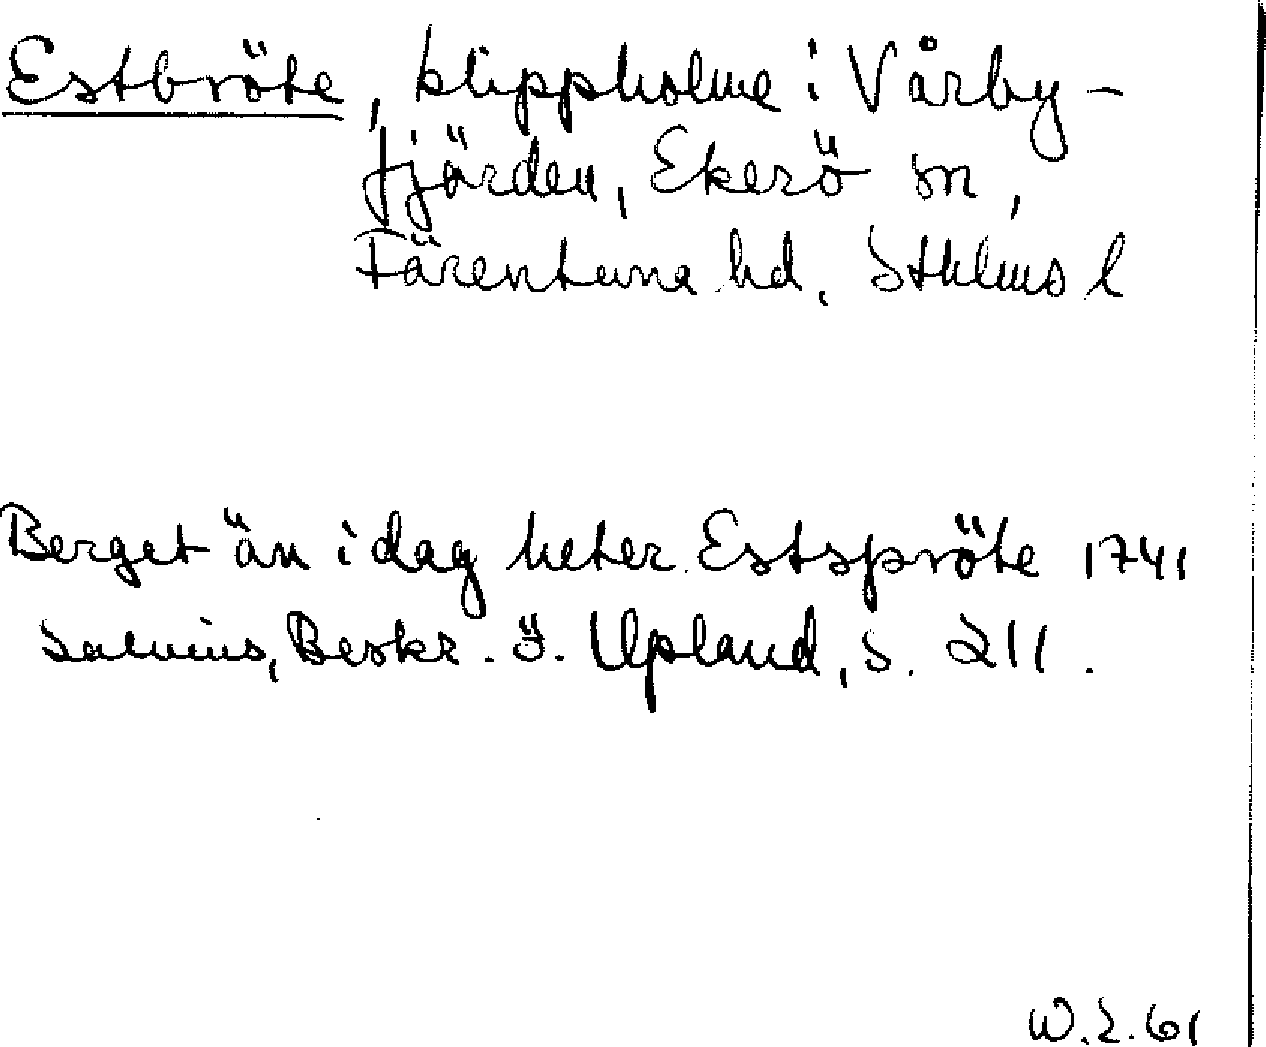 Estbröte, klippholme i Vårby-
fjärden, Ekerö sn,
Färentuna hd, Sthlms l
Berget än i dag heter Estspröte 1741
Salvius, Beskr. ö. Upland, s. 211.
W.Z.61